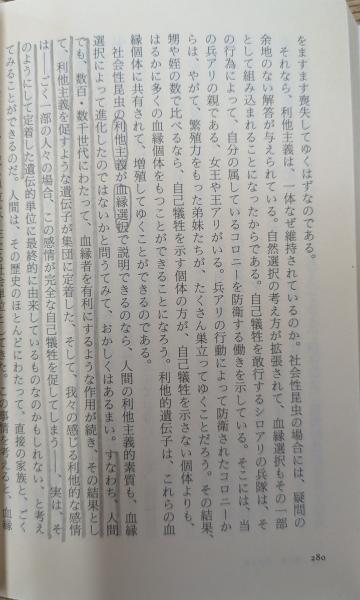 をますます喪失してゆくはずなのである。
それなら、利他主義は、一体なぜ維持されているのか。社会性昆虫の場合には、疑問の
余地のない解答が与えられている。自然選択の考え方が拡張されて、血縁選択もその一部
として組み込まれることになったからである。自己犠牲を敢行するシロアリの兵隊は、そ
の行為によって、自分の属しているコロニーを防衛する働きを示している。そこには、当
の兵アリの親である、女王や王アリがいる。兵アリの行動によって防衛されたコロニーか
らは、やがて、繁殖力をもった弟妹たちが、たくさん巣立ってゆくことだろう。その結果、
甥や姪の数で比べるなら、自己犠牲を示す個体の方が、自己犠牲を示さない個体よりも、
はるかに多くの血縁個体をもつことができることになろう。利他的遺伝子は、これらの血
縁個体に共有されて、増殖してゆくことができるのである。
社会性昆虫の利他主義が血縁選択で説明できるのなら、人間の利他主義的素質も、血縁
選択によって進化したのではないかと問うてみて、おかしくはあるまい。すなわち、人間
でも、数百・数千世代にわたって、血縁者を有利にするような作用が続き、その結果とし
て、利他主義を促すような遺伝子が集団に定着した、そして、我々の感じる利他的な感情
は――ごく一部の人々の場合、この感情が完全な自己犠牲を促してしまう――、実は、そ
のようにして定着した遺伝的単位に最終的に由来しているものなのかもしれない、と考え
てみることができるのだ。人間は、その歴史のほとんどにわたって、直接の家族と、ごく
事情を考えると、血縁
280